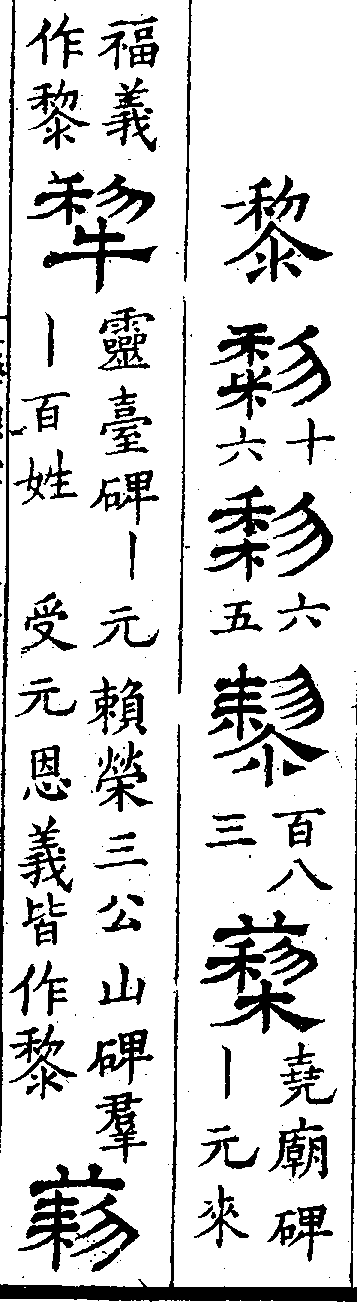 黎
十六
六五
百八三
堯廟碑｜元來
福義作黎
犂
靈臺碑｜元賴榮三公山碑羣
｜百姓 受元恩義皆作黎